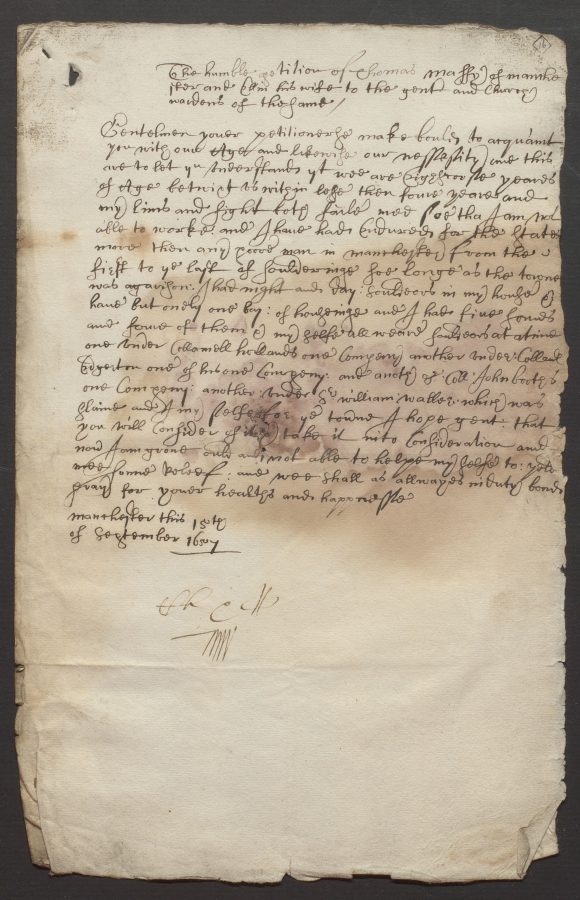 The humble petition of Thomas Massy of manche
ster and his wife to the gent and Church
wardens of the same
Gentelmen youer petitioners make bould to acquant
you with our Age and likewise our nessesity and this
are to let yu understand yt wee are years
of Age betwixt us within lese then foure yeares and
my lims and sight both faile mee soe that I am not
able to worke and I have had indured for the state
more then any poore man in manchester from the
first to ye last of souldieringe soe longe as the towne
was agarison: I had night and day: souldeors in my house &
have but onely one bay: of houseinge and I had five sonds
and foure of them & my selfe all weare souldeors at atime
one under Collonell hollands one Company another under: Collonell
Edgerton one of his one Company: and another of Coll: John booths
one Company: another under Sr william waller: which was
slaine and I my selfe for ye towne I hope gent: that
you will Consider of it and take it into Consideration and
now I am grone ould and not able to helpe my selfe to: yeld
mee sonne Releef: and wee shall as allwayes in duty bond
pray for youer healths and happinesse
manchester this 15th
of September 1657